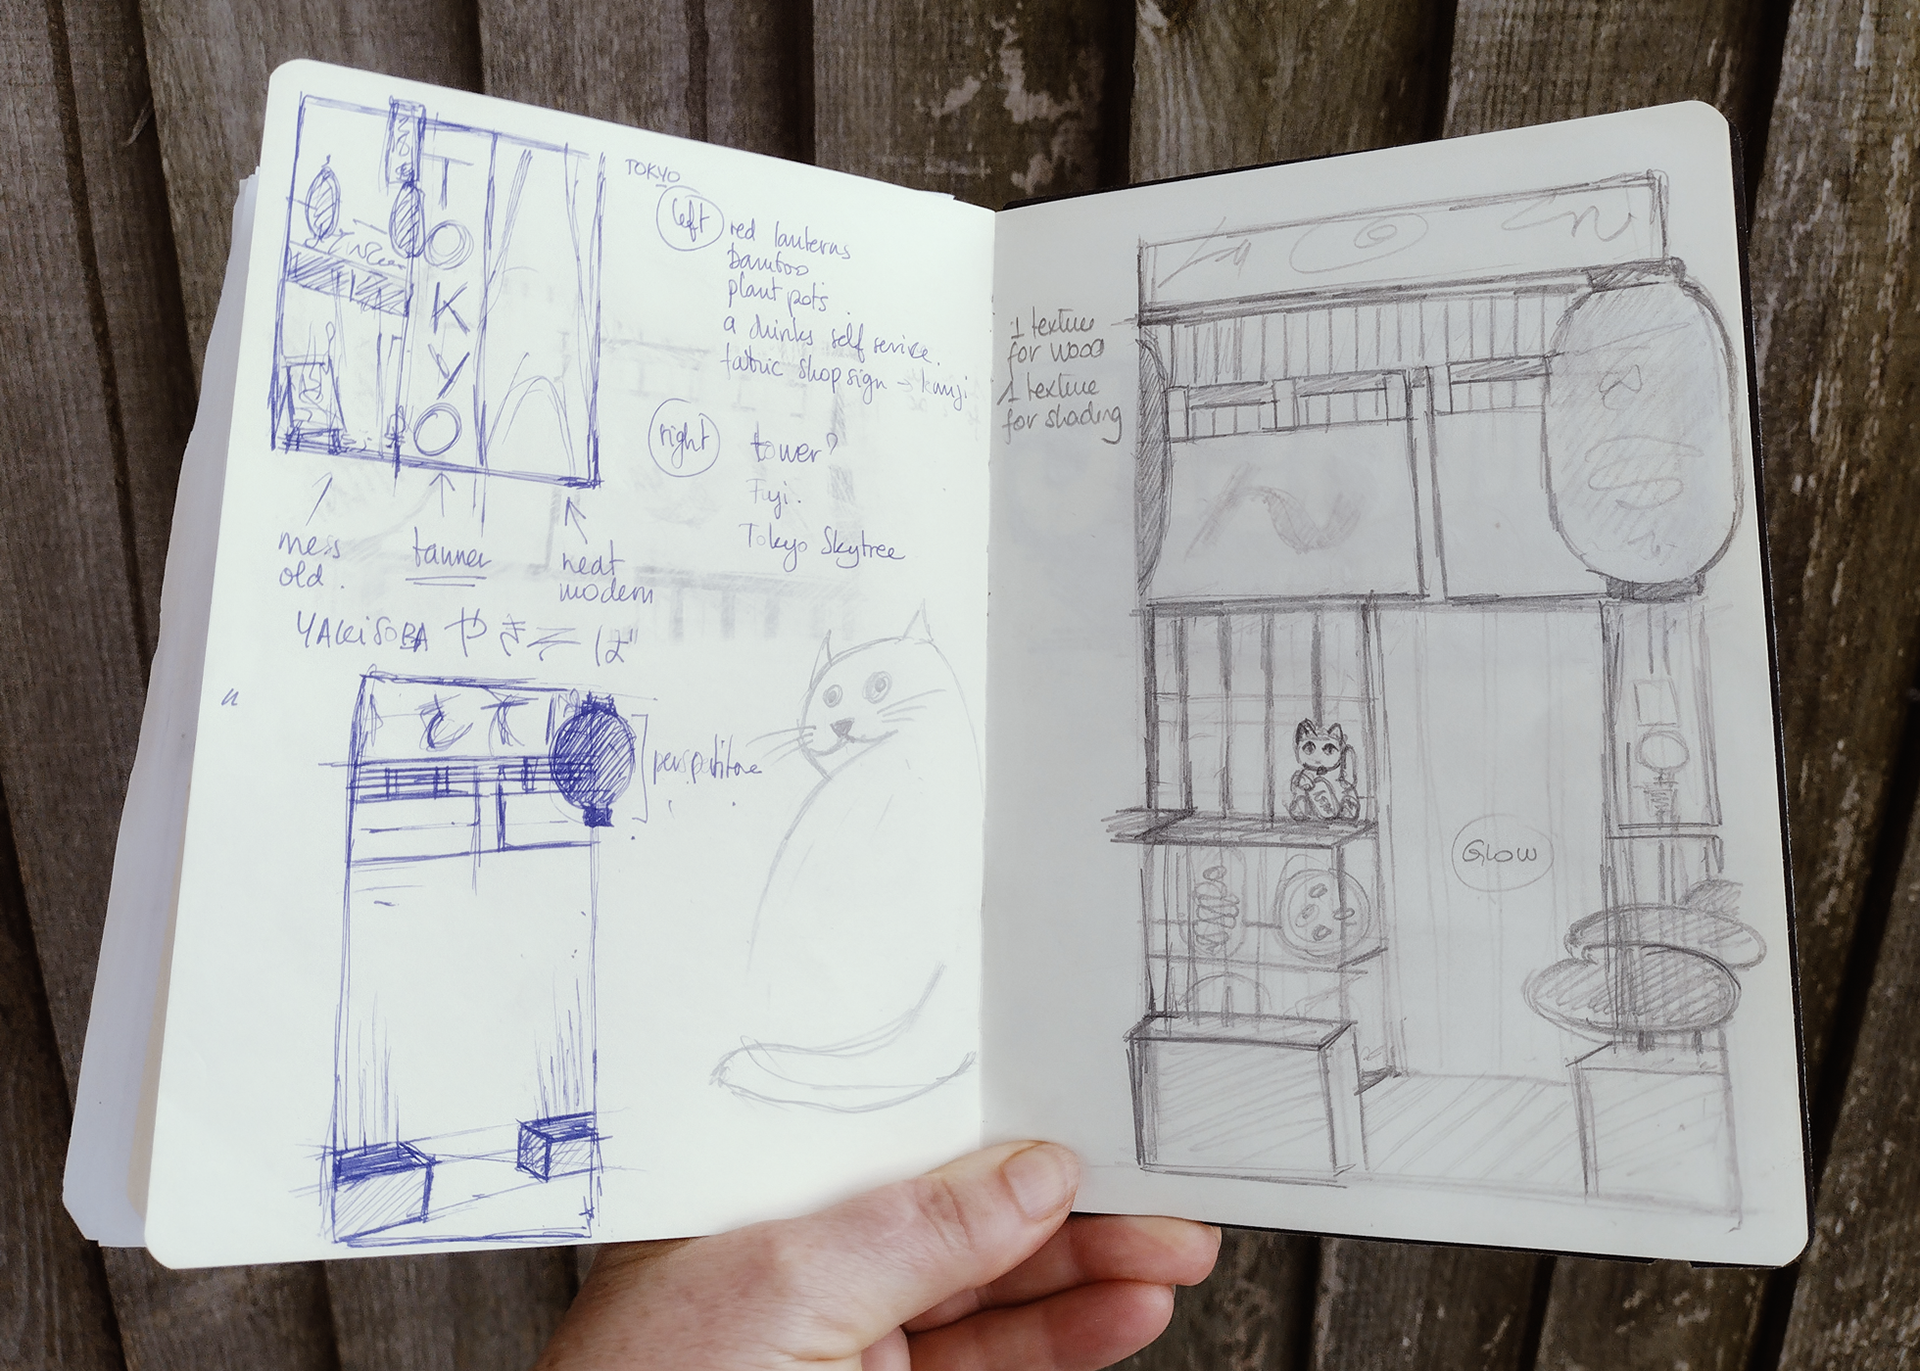 T
O
K
Y
O
TOKYO
left
red lanterns
bamboo
plant pots
a drinks self service.
fabric shop sign → kanji
right
tower?
Fuji.
Tokyo Skytree
mess
old.
banner
neat
modern
YAKISOBA やきそば
1 texture
for wood
1 texture
for shading
GLOW